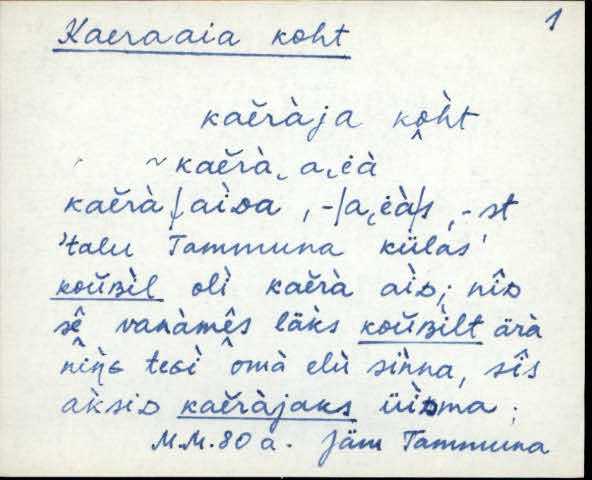 1
Kaeraaia koht
kaĕràja kô̭ht
~ kaĕrà‿a‿ėà
kaĕrà|aìᴅa, -|a‿ėà|s, -st
'talu Tammuna külas'
koŭʙìl oli kaĕrà aìᴅ; nîᴅ
sê vanàmês läks koŭʙìlt ärà
nìŋɢ teɢì omà elù sìnna, sîs
aksiᴅ kaĕràjaks üìᴅma;
M.M. 80 a. Jäm Tammuna